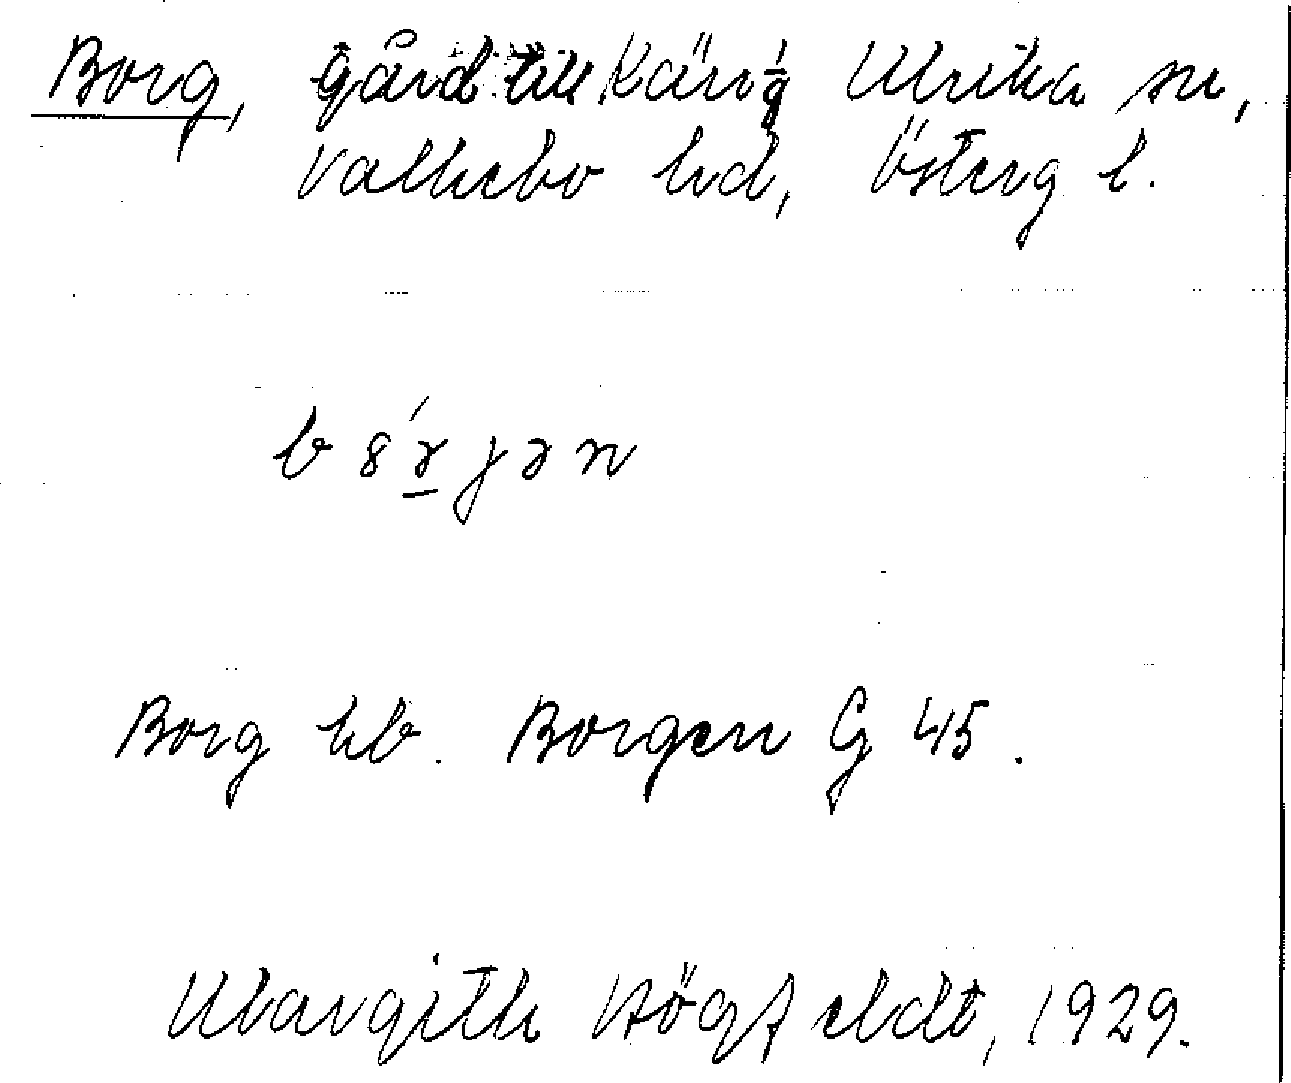 Borg, gård till Kärr 1/9 Ulrika sn,
Valkebo hd, Österg l.
b 8 ́ɤ̱ j ə n
Borg hb. Borgen G 45.
Margith Högfeldt, 1929.